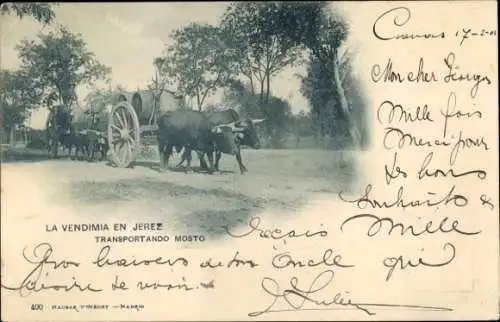 17-2-01
Mon cher Georges
Mille fois
merci pour
tes bons
souhaits
reçois mille
LA VENDIMIA EN JEREZ
TRANSPORTANDO MOSTO
bons baisers de ton Oncle qui
désire de
Julien
400 HAUSER Y MENET — MADRID